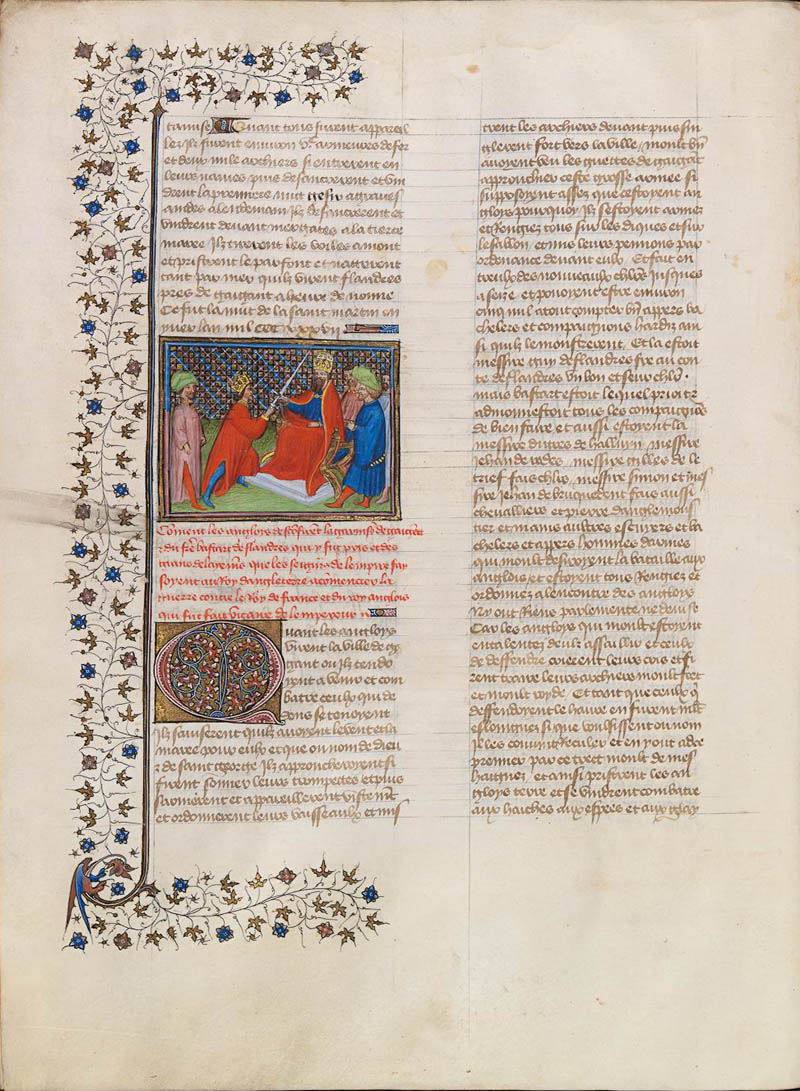 tamise Quant tous furent appareil
lez ilz furent environ v.c armeures de fer
et deux mile archiers si entrerent en
leurs naves puis desancrerent et vin
drent la premiere nuit gesir a graves
andes a lendemain ilz desancrerent et
vindrent devant mergates a la tierce
maree ilz tirerent les voiles amont
et pristrent le parfont et nagerent
tant par mer quilz virent flandres
pres de gagant a heure de nonne
Ce fut la nuit de la saint martin en
yver lan mil CCC xxxvij
Coment les anglois desconfirent la garnison de gagant
et du frere bastart de flandres qui y fu pris et des
que les seigneurs de lempire fai
soyent au Roy dangleterre a comencier la
guerre contre le Roy de france et du roy anglois
qui fut fait vicaire de lempereur
Quant les anglois
virent la ville de ga
gant ou ilz tendo
yent a venir et com
batre ceulx qui de
dens se tenoyent
Ilz saviserent quilz avoient le vent et la
maree pour eulx et que ou nom de dieu
et de saint george ilz approcheroyent si
firent sonner leurs trompetes et puis
sarmerent et appareillerent vistement
et ordonnerent leurs vaisseaulx et mis
trent les archiers devant puis sin
glerent fort vers la ville moult bien
avoyent veu les guettes de gagant
approuchier ceste grosse armee si
supposoyent assez que cestoyent an
glois pourquoy ilz sestoyent armez
et Rengiez tous sur les diques et sur
le sablon et mis leurs pennons par
ordonance devant eulx Et fait en
treulx des nouveaulx chlers jusques
a seize et povoyent estre environ
cinq mil a tout compter bien appers ba
chelers et compaignons hardiz ain
si quilz le monstrerent Et la estoit
messire guy de flandres frere au con
te de flandres un bon et seur chler
mais bastart estoit lequel prioit et
admonnestoit tous les compaignons
de bien faire et aussi estoyent la
messire dutres de halluyn messire
jehan de rodes messire gilles de le
trief fais chler messire simon et mes
sire jehan de bruquedent fais aussi
chevalliers et pierre danglemous
tier et mains aultres escuiers et ba
chelers et appers hommes darmes
qui moult desiroyent la bataille aux
anglois et estoyent tous Rengiez et
ordonnez a lencontre des anglois
Ny out Riens parlemente ne devise
Car les anglois qui moult estoyent
entalentez deulx assaillir et ceulx
de deffendre crierent leurs cris et fi
rent traire leurs archiers moult fort
et moult royde Et tant que ceulx qui
deffendoyent le havre en furent moult
eslongniez si que voulsissent ou nom
il les convint Reculer et en y ont a de
premier par ce trect moult de mes
haigniez et ainsi pristrent les an
glois terre et se vindrent combatre
aux haiches aux espees et aux glay